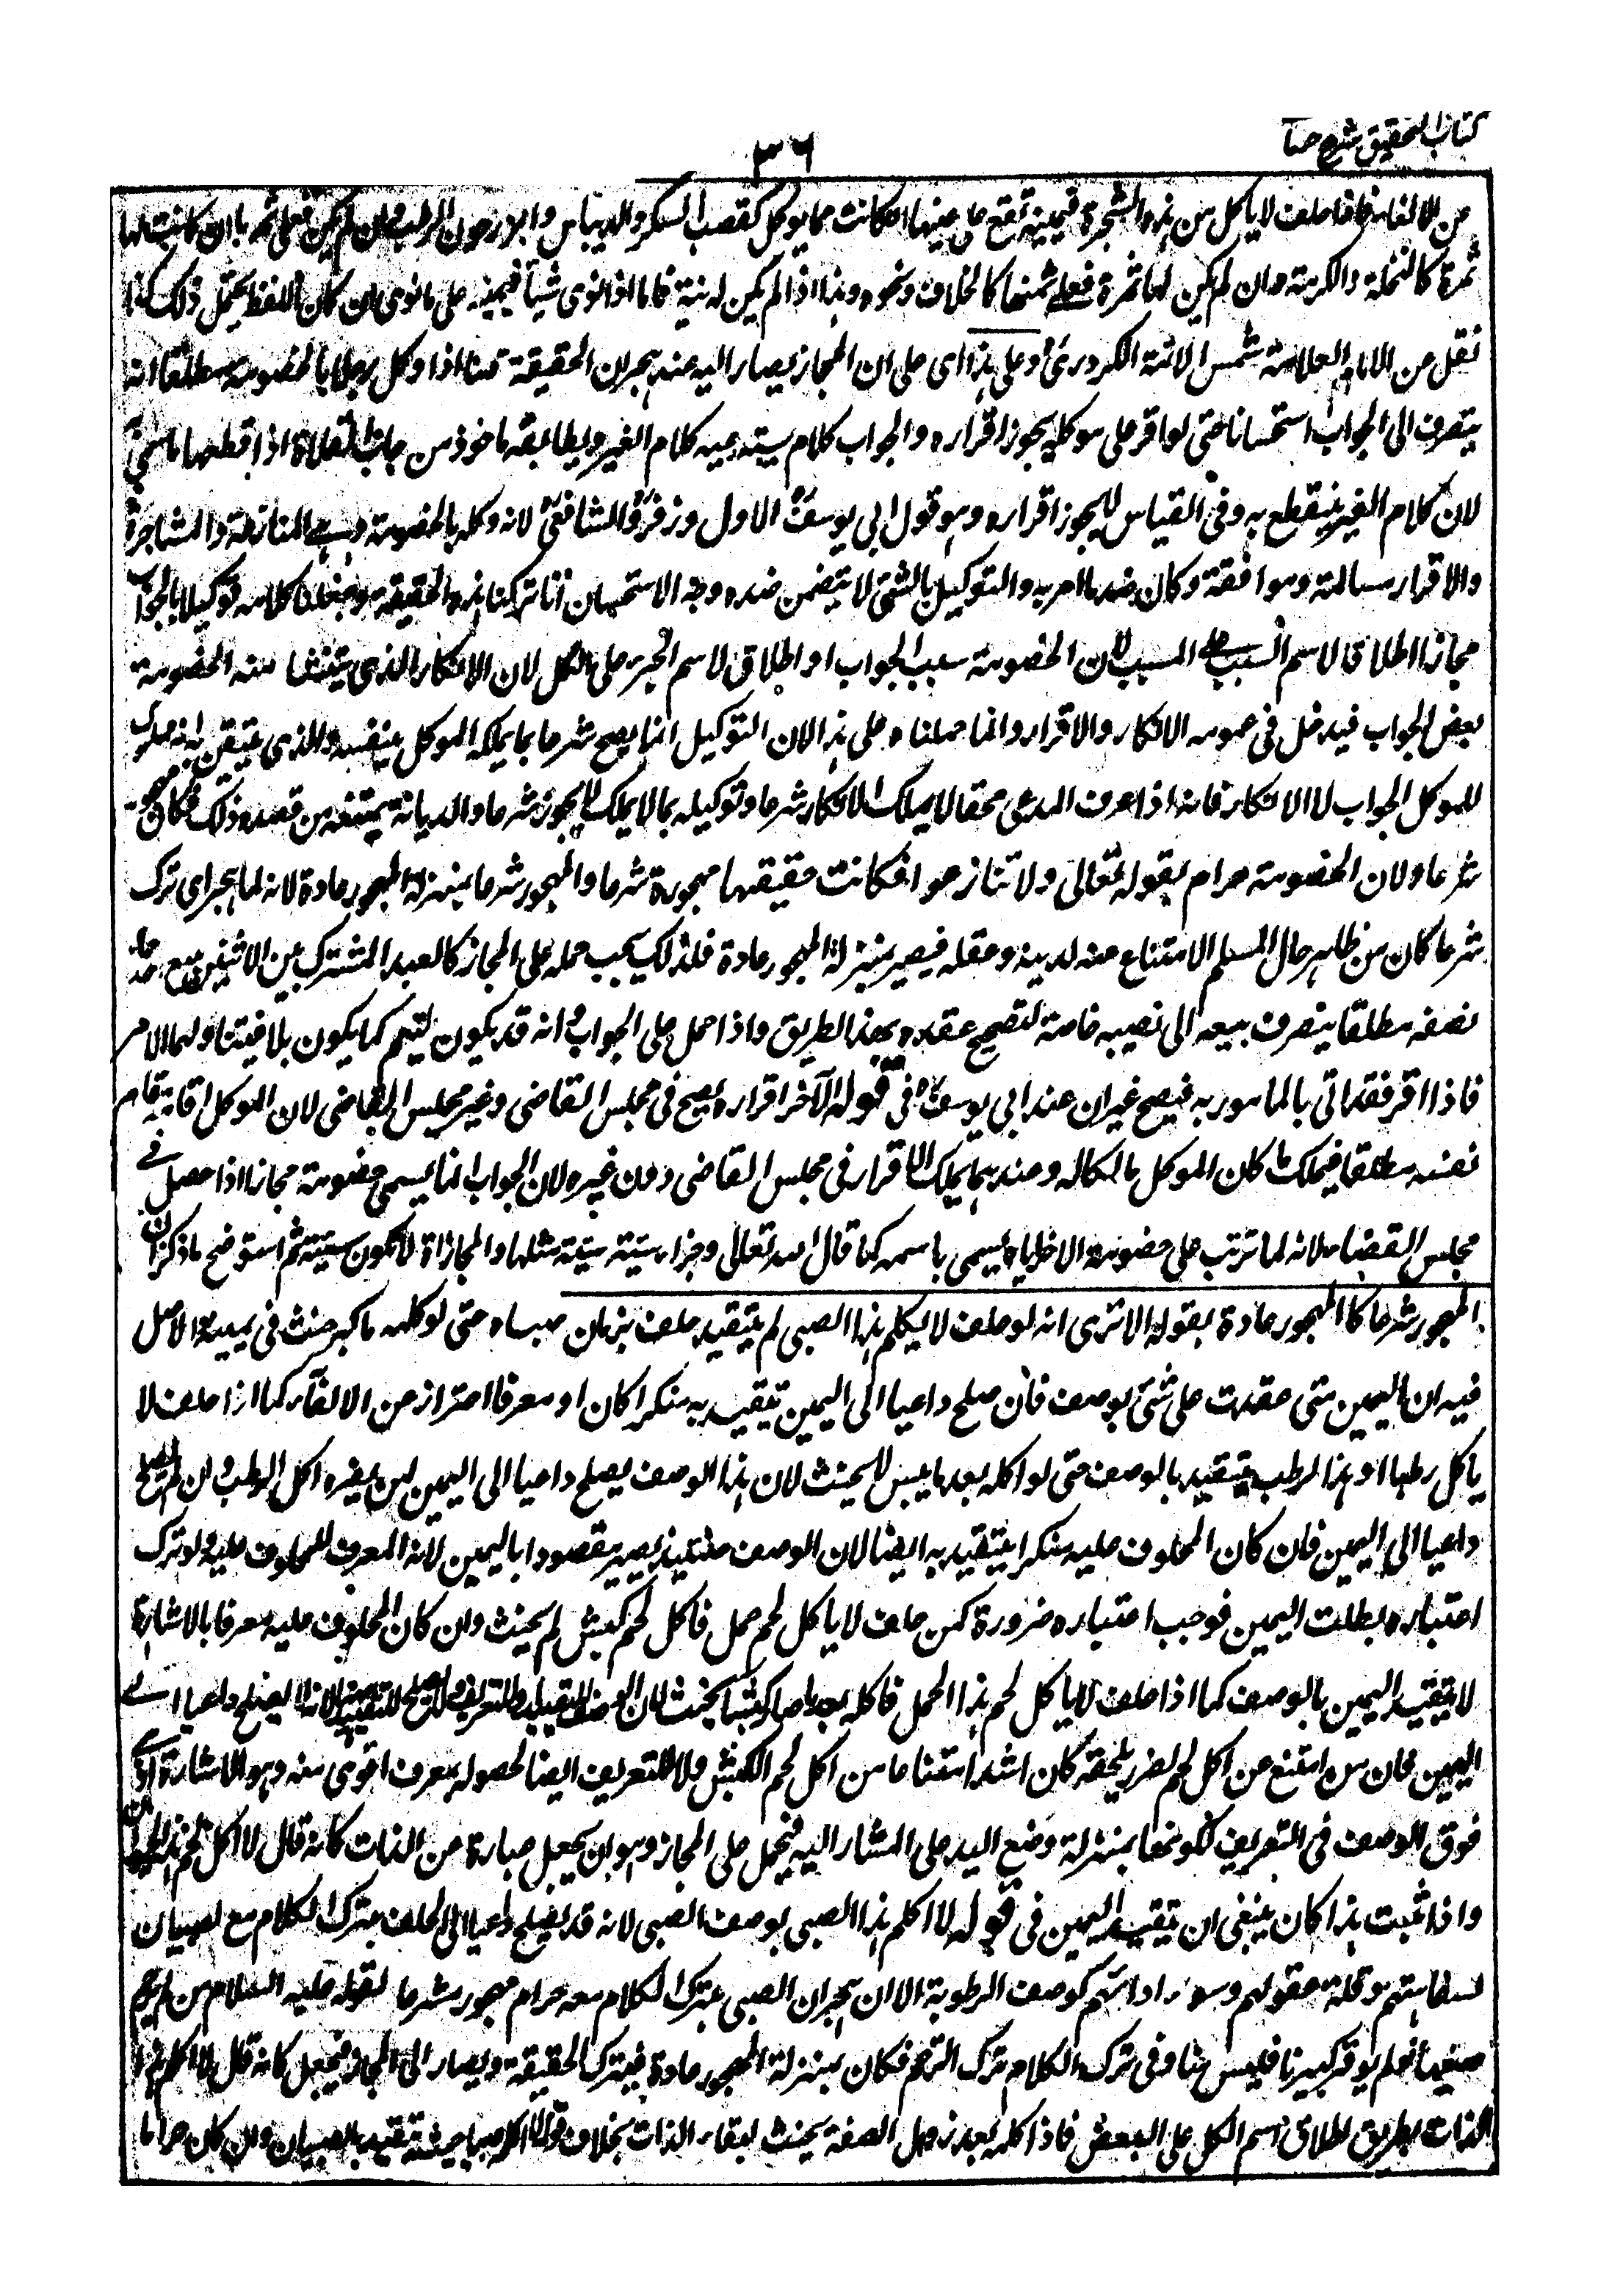 كتاب التحقيق شرح حسا
٣٦
من الالغاء فاذا حلف لا ياكل من هذه الشجرة فيمينه تقع على عينها ان كانت مما يوكل كقصب السكر والريباس وان لم يكن فعلى ثمرها ان كانت لها
ثمرة كالنخلة والكرمة وان لم يكن لها ثمرة فعلى ثمنها كالخلاف ونحوه وهذا اذا لم يكن له نية فاما اذا نوى شيأ فيمينه على ما نوى ان كان اللفظ يحتمل ذلك كذا
نقل عن الامام العلامة شمس الائمة الكردرى وعلى هذا اى على ان المجاز يصار اليه عند هجران الحقيقة قلنا اذا وكل رجلا بالخصومة مطلقا انه
يتصرف الى الجواب استحسانا حتى لو اقر على موكله يجوز اقراره والجواب كلام يستدعيه كلام الغير ويطابقه ماخوذ من جاب الفلاة اذا قطعها سمى به
لان كلام الغير ينقطع به وفى القياس لا يجوز اقراره وهو قول ابى يوسف الاول وزفر والشافعى لانه وكله بالخصومة وهى المنازعة والمشاجرة
والاقرار مسالمة وموافقة وكان ضد ما امر به والتوكيل بالشئ لا يتضمن ضده وجه الاستحسان انا تركنا هذه الحقيقة وجعلنا كلامه توكيلا بالجواب
مجازا اطلاقا لاسم السبب على المسبب لان الخصومة سبب الجواب او اطلاق لاسم الجزء على الكل لان الانكار الذى ينشأ منه الخصومة
بعض الجواب فيدخل فى عمومه الانكار والاقرار وانما حملناه على هذا لان التوكيل انما يصح شرعا بما يملكه الموكل بنفسه والذى يتيقن به انه مملوك
للموكل الجواب لا الانكار فانه اذا عرف المدعى محقا لا يملك الانكار شرعا وتوكيله بما لا يملك لا يجوز شرعا والديانة تمنعه من قصد ذلك فكان مهجورا
شرعا ولان الخصومة حرام بقوله تعالى ولا تنازعوا فكانت حقيقتها مهجورة شرعا والمهجور شرعا بمنزلة المهجور عادة لانه لما هجر اى ترك
شرعا كان من ظاهر حال المسلم الامتناع عنه لدينه وعقله فيصير بمنزلة المهجور عادة فلذلك يجب حمله على المجاز كالعبد المشترك بين الاثنين يبيع احدهما
نصفه مطلقا ينصرف بيعه الى نصيبه خاصة لتصحيح عقده بهذا الطريق واذا حمل على الجواب وانه قد يكون بنعم كما يكون بلا فيتناولهما الامر
فاذا اقر فقد اتى بالمامور به فيصح غير ان عند ابى يوسف فى قوله الآخر اقراره يصح فى مجلس القاضى وغير مجلس القاضى لان الموكل اقامه مقام
نفسه مطلقا فيملك ما كان الموكل مالكا له وعندهما يملك الاقرار فى مجلس القاضى دون غيره لان الجواب انما يسمى خصومة مجازا اذا حصل فى
مجلس القضاء لانه لما ترتب على خصومة الاخر اياه يسمى باسمه كما قال الله تعالى وجزاء سيئة سيئة مثلها والمجازاة لا تكون سيئة ثم استوضح ما ذكر ان
المهجور شرعا كالمهجور عادة بقوله الا ترى انه لو حلف لا يكلم هذا الصبى لم يتقيد حلفه بزمان صباه حتى لو كلمه ما كبر حنث فى يمينه والاصل
فيه ان اليمين متى عقدت على شئ بوصف فان صلح داعيا الى اليمين تتقيد به منكرا كان او معرفا احترازا عن الالغاء كما اذا حلف لا
ياكل رطبا او هذا الرطب يتقيد بالوصف حتى لو اكله بعد ما يبس لا يحنث لان هذا الوصف يصلح داعيا الى اليمين لمن يضره اكل الرطب وان لم يصلح
داعيا الى اليمين فان كان المحلوف عليه منكرا يتقيد به ايضا لان الوصف حينئذ يصير مقصودا باليمين لانه المعرف للمحلوف عليه ولو ترك
اعتباره بطلت اليمين فوجب اعتباره ضرورة كمن حلف لا ياكل لحم حمل فاكل لحم كبش لم يحنث وان كان المحلوف عليه معرفا بالاشارة
لا يتقيد اليمين بالوصف كما اذا حلف لا ياكل لحم هذا الحمل فاكله بعد ما صار كبشا يحنث لان الوصف للتقييد او للتعريف ولا يصلح للتقييد لانه لا يصلح داعيا الى
اليمين فان من امتنع من اكل لحم لضرر يلحقه كان اشد امتناعا من اكل لحم الكبش ولا للتعريف ايضا لحصوله بمعرف اقوى منه وهو الاشارة اذ هى
فوق الوصف فى التعريف لكونها بمنزلة وضع اليد على المشار اليه فيحمل على المجاز وهو ان يجعل عبارة عن الذات كانه قال لا اكل لحم هذا الحيوان
واذا ثبت هذا كان ينبغى ان يتقيد اليمين فى قوله لا اكلم هذا الصبى بوصف الصبى لانه قد يصلح داعيا الى الحلف بترك الكلام مع الصبيان
لسفاهتهم وقلة عقولهم وسوء ادابهم كوصف الرطوبة الا ان هجران الصبى بترك الكلام معه حرام مهجور شرعا لقوله عليه السلام من لم يرحم
صغيرنا ولم يوقر كبيرنا فليس منا وفى ترك الكلام ترك الترحم فكان بمنزلة المهجور عادة فيترك الحقيقة ويصار الى المجاز فيجعل كانه قال لا اكلم هذا
الذات بطريق اطلاق اسم الكل على البعض فاذا كلمه بعد زوال الصفة يحنث لبقاء الذات بخلاف قوله لا اكلم صبيا حيث تقيد بالصبيان وان كان حراما